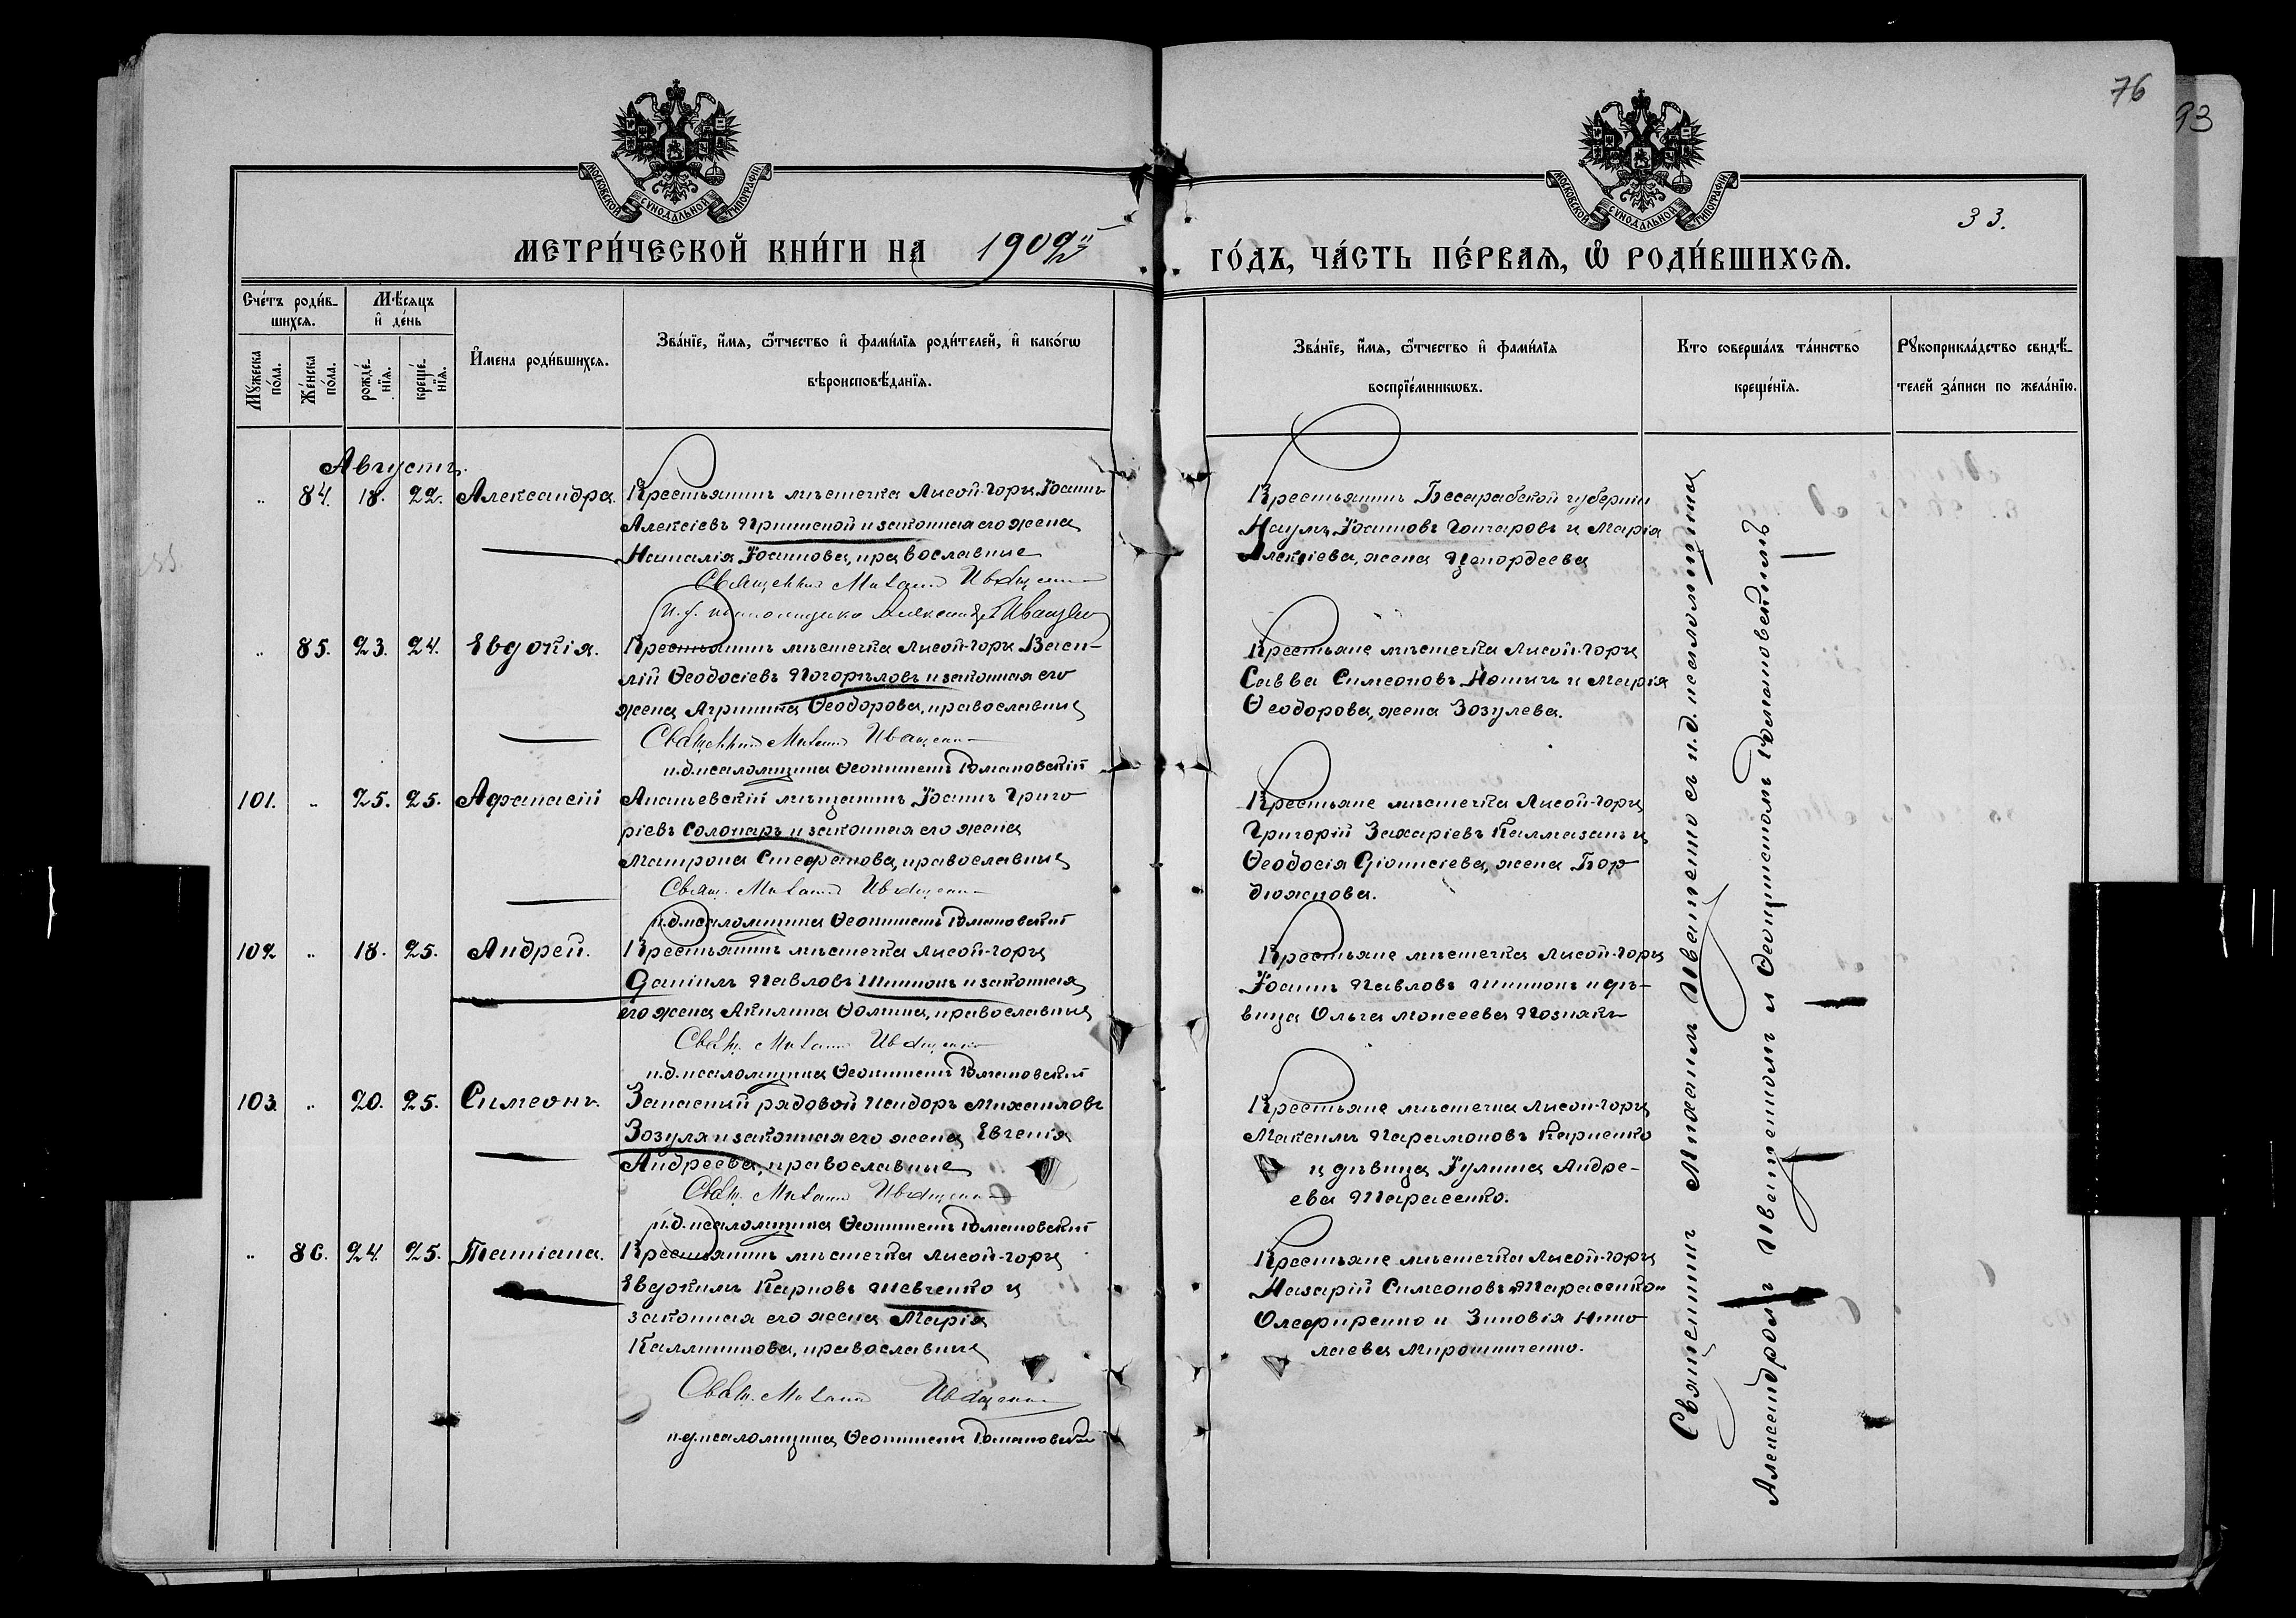 76
93
МОСКОВСКОЙ СѴНОДАЛЬНОЙ ТИПОГРАФІИ
МОСКОВСКОЙ СѴНОДАЛЬНОЙ ТИПОГРАФІИ
33.
МЕТРИ́ЧЕСКОЙ КНИ́ГИ НА 1909й
ГО́ДЪ, ЧА́СТЬ ПЕ́РВАЯ, Ѽ РОДИ́ВШИХСѦ.
Сче́тъ роди́в-
шихсѧ.
Мꙋ́жеска по́ла.
Же́нска по́ла.
Мѣ́сяцъ
и҆ де́нь
рожде́-
нїѧ.
креще́-
нїѧ.
И҆мена роди́вшихсѧ.
Зва́нїе, и҆́мѧ, ѻ҆́тчество и҆ фами́лїѧ роди́телей, и҆ како́гѡ
вѣроисповѣ́данїѧ.
Зва́нїе, и҆́мѧ, ѻ҆́тчество и҆ фами́лїѧ
воспрїе́мникѡвъ.
Кто соверша́лъ та́инство
креще́нїѧ.
Рꙋкоприкла́дство свидѣ́-
телей за́писи по жела́нїю.
Августъ.
„ 84. 18. 22. Александра. Крестьянинъ мѣстечка Лысой-Горы Іоаннъ
Алексіевъ и законная его жена
Наталія Іоаннова, православные
Священникъ Михаилъ Иващенко
и. д. псаломщика Александръ Иващенко
Крестьянинъ Бесарабской губерніи
Наумъ Іоанновъ Гончаровъ и Марія
Алексіева, жена
„ 85. 23. 24. Евдокія. Крестьянинъ мѣстечка Лысой-Горы Васи-
лій Ѳеодосіевъ Погорѣловъ и законная его
жена Агрипина Ѳеодорова, православные
Священникъ Михаилъ Иващенко
и. д. псаломщика Ѳеоктистъ Романовскій
Крестьяне мѣстечка Лысой-Горы
Савва Симеоновъ и Марія
Ѳеодорова, жена Зозулева.
101. „ 25. 25. Афанасій Ананьевскій мѣщанинъ Іоаннъ Григо
ріевъ Солонарь и законная его жена
Матрона Стефанова, православные
Свящ. Михаилъ Иващенко
и. д. псаломщика Ѳеоктистъ Романовскій
Крестьяне мѣстечка Лысой-Горы
Григорій Захаріевъ Калмазанъ и
Ѳеодосія Діонисіева, жена Бор
дюжнова.
102 „ 18. 25. Андрей. Крестьянинъ мѣстечка Лысой-Горы
Даніилъ Павловъ Шишонъ и законная
его жена Акилина Ѳомина, православные
Свящ. Михаилъ Иващенко
и. д. псаломщика Ѳеоктистъ Романовскій
Крестьяне мѣстечка Лысой-Горы
Іоаннъ Павловъ Шишонъ и дѣ-
вица Ольга Моисеева Познякъ
103. „ 20. 25. Симеонъ. Запасный рядовой Исидоръ Михаиловъ
Зозуля и законная его жена Евгенія
Андреева, православные
Свящ. Михаилъ Иващенко
и. д. псаломщика Ѳеоктистъ Романовскій
Крестьяне мѣстечка Лысой-Горы
Максимъ Парамоновъ Карпенко
и дѣвица Іулита Андре-
ева Тарасенко.
„ 86. 24. 25. Татіана. Крестьянинъ мѣстечка Лысой-Горы
Евдокимъ Карповъ Шевченко и
законная его жена Марія
Каллиникова, православные
Свящ. Михаилъ Иващенко
и. д. псаломщика Ѳеоктистъ Романовскій
Крестьяне мѣстечка Лысой-Горы
Назарій Симеоновъ Тарасенко
Олефиренко и Зиновія Нико
лаева Мирошниченко.
Священникъ Михаилъ Иващенко съ и. д. псаломщика
Александромъ Иващенкомъ и Ѳеоктистомъ Романовскимъ